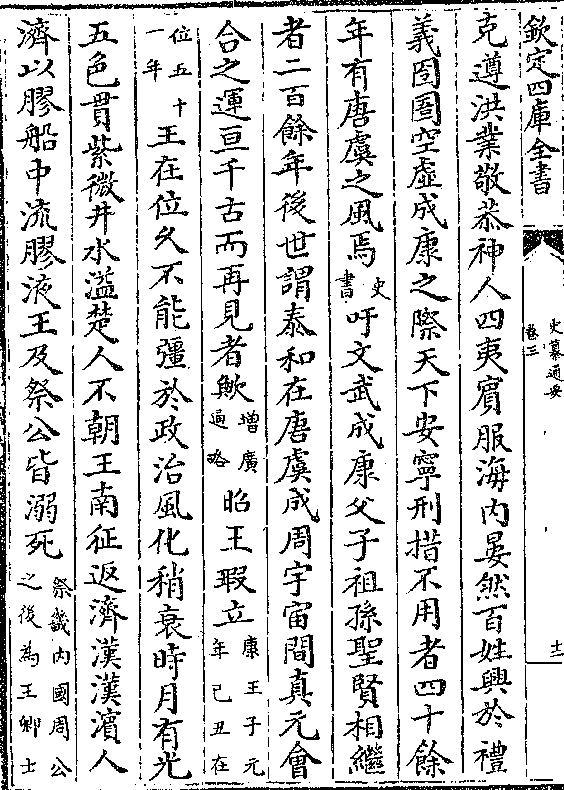 欽定四庫全書
史纂通要
卷三
十一
克遵洪業敬恭神人四夷賓服海内晏然百姓興於禮
義囹圄空虛成康之際天下安寧刑措不用者四十餘
年有唐虞之風焉史書吁文武成康父子祖孫聖賢相繼
者二百餘年後世謂泰和在唐虞成周宇宙間真元會
合之運亘千古而再見者歟增廣通略昭王瑕立康王子元年己丑在
位五十一年王在位久不能彊於政治風化稍衰時月有光
五色貫紫微井水溢楚人不朝王南征返濟漢漢濱人
濟以膠船中流膠液王及祭公皆溺死祭畿内國周公之後為王卿士